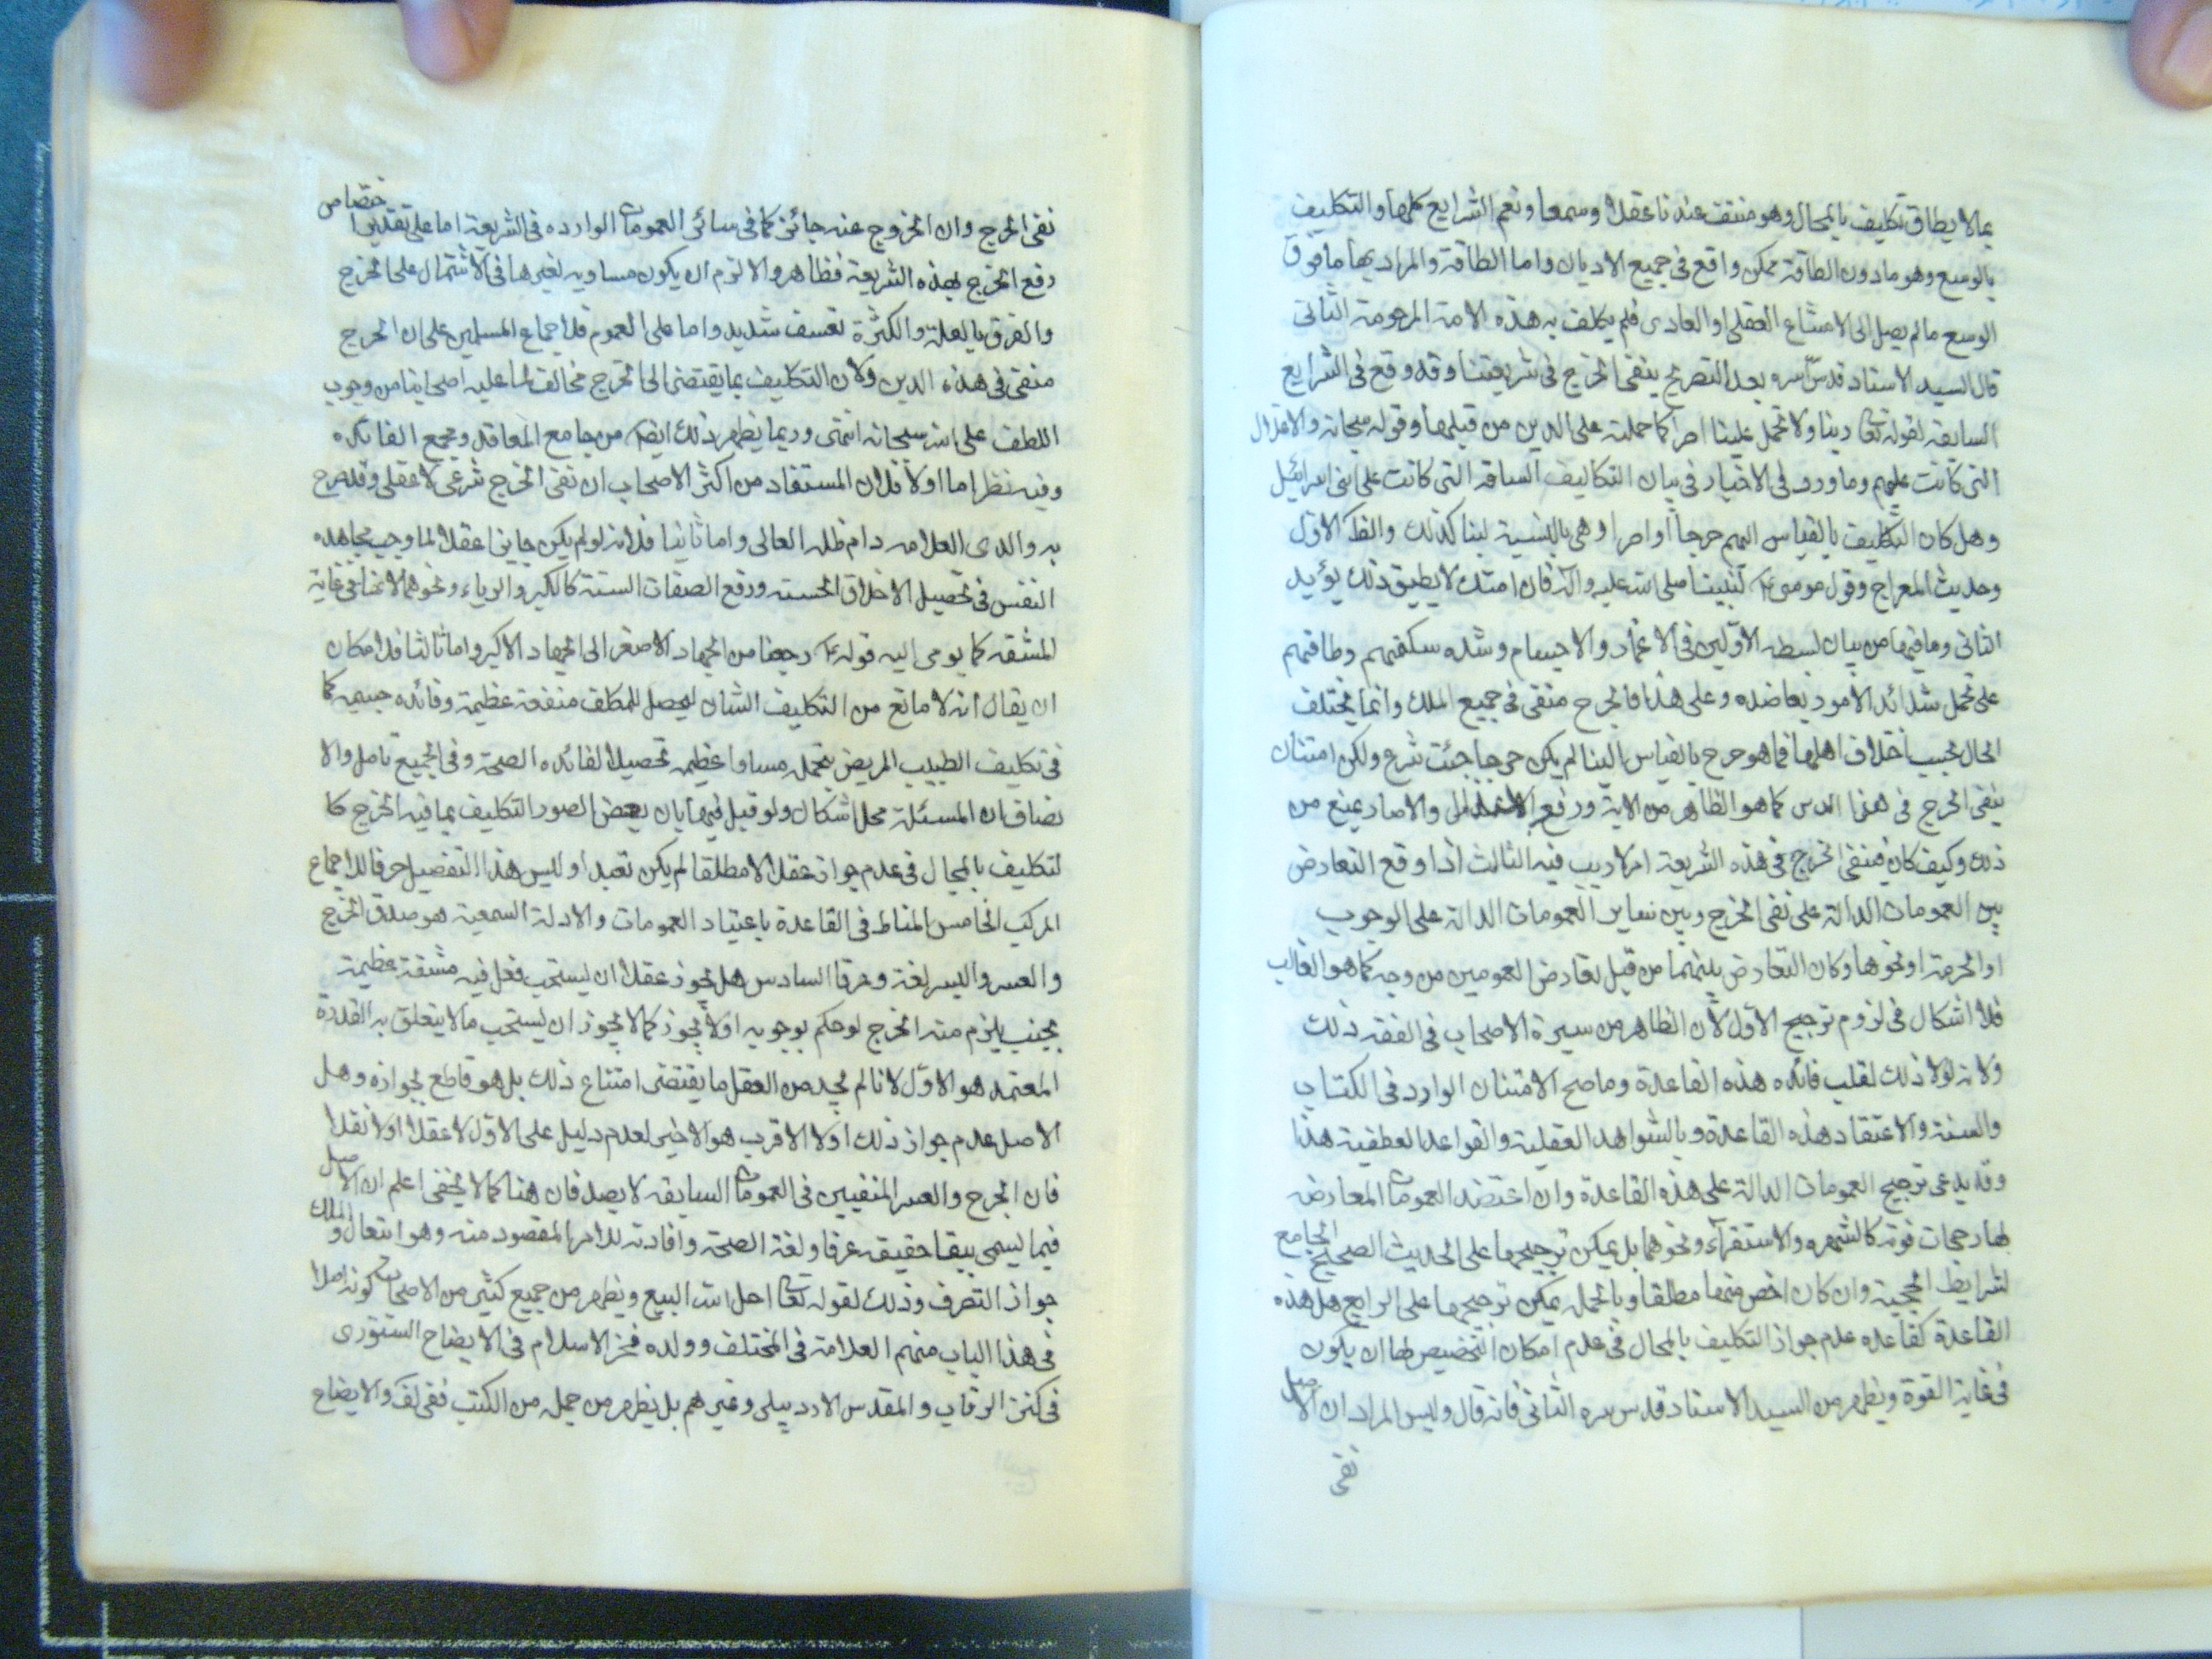 بما لا يطاق تكليف بالمحال وهو منتف عندنا عقلا وسمعا وتعم الشرايع كلها والتكليف
بالوسع وهو ما دون الطاقة ممكن واقع في جميع الاديان واما الطاقة والمراد بها ما فوق
الوسع ما لم يصل الى الامتناع العقلي او العادي فلم يكلف به هذه الامة المرحومة الثاني
قال السيد الاستاد قدس سره بعد التصريح بنفي الحرج في شريعتنا وقد وقع في الشرايع
السابقة لقوله تعا ربنا ولا تحمل علينا اصرا كما حملته على الدين من قبلها وقوله سبحانه والاغلال
التي كانت عليهم وما ورد في الاخبار في بيان التكاليف الساقة التي كانت على بني اسرائيل
وهل كان التكليف بالقياس اليهم حرجا او اصرا وهي بالنسبة لينا كذلك والظ الاول
وحديث المعراج وقول موسى ع لنبينا صلى الله عليه وآله فان امتك لا يطيق ذلك يؤيد
الثاني وما فيها من بيان لسطه الاولين في الاعمار والاجسام وشده سكفتهم وطاقتهم
على تحمل شدائد الامور يعاضده وعلى هذا فالحرج منفى في جميع الملك وانما يختلف
الحال بحسب اختلاف اهلها فما هو حرج بالقياس الينا لم يكن حرجا حيث شرع ولكن امتنان
بنفي الحرج في هذا الدس كما هو الظاهر من الاية ورفع الاغلال والاصار يمنع من
ذلك وكيف كان فنفى الحرج في هذه الشريعة امر لا ريب فيه الثالث اذا وقع التعارض
بين العمومات الدالة على نفى الحرج وبين ساير العمومات الدالة على الوجوب
او الحرمة او نحوها وكان التعارض بينهما من قبل تعارض العمومين من وجه كما هو الغالب
فلا اشكال في لزوم ترجيح الاول لان الظاهر من سيرة الاصحاب في الفقه ذلك
ولانه لولا ذلك لقلب فائده هذه القاعدة وما صح الامتنان الوارد في الكتاب
والسنة والاعتقاد هذه القاعدة وبالشواهد العقلية والقواعد العطفية هذا
وقد يدعى ترجيح العمومات الدالة على هذه القاعدة وان اعتضد العمومات المعارضة
لها رجحات قوته كالشهره والاستقراء ونحوهما بل يمكن ترجيحها على الحديث الصحيح الجامع
لشرايط الحجية وان كان اخص منها مطلقا وبالجمله يمكن ترجيحها على الرابع هل هذه
القاعدة كقاعده عدم جواز التكليف بالمحال في عدم امكان التخصيص لها ان يكون
في غاية القوة ويظهر من السيد الاستاد قدس سره الثاني فانه قال وليس المراد ان الاصل
نفى
نفى الحرج وان الخروج عنه جائز كما في سائر العمومات الوارده في الشريعة اما على تقدير اختصاص
رفع الحرج بهذه الشريعة فظاهر والا لزم ان يكون مساويه لغيرها في الاشتمال على الحرج
والفرق بالعلة والكثرة تعسف شديد واما على العموم فلا جماع المسلمين على ان الحرج
منفى في هذه الدين ولان التكليف بما يقتضى الى الحرج مخالف لما عليه اصحابنا من وجوب
اللطف على الله سبحانه انتهى وربما يظهر ذلك ايضا من جامع المقاقد ومجمع الفائده
وفيه نظر اما اولا فلان المستفاد من اكثر الاصحاب ان نفى الحرج شرعى لا عقلى وقد صرح
به والدى العلامه دام ظله العالى واما ثانيا فلانه لو لم يكن جايزا عقلا لما وجب مجاهده
النفس في تحصيل الاخلاق الحسنه ورفع الصفات السيئة كالكبر والرياء ونحوهما لانها في غاية
المشقه كما يومى اليه قوله ع رجعنا من الجهاد الاصغر الى الجهاد الاكبر واما ثالثا فلا مكان
ان يقال انه لا مانع من التكليف الشاق ليحصل للمكلف منفعة عظيمة وفائده جسيمه كما
في تكليف الطبيب المريض بتحمله مساوا عظيمه تحصيلا لفائده الصحة وفي الجميع تامل والا
نضاف ان المسئلة محل اشكال ولو قيل فيها بان بعض الصور التكليف بما فيه الحرج كا
لتكليف بالمحال في عدم جوازه عقلا لا مطلقا لم يكن بعيدا وليس هذا التفصيل خرقا للاجماع
المركب الخامس المناط في القاعدة باعتبار العمومات والادلة السمعية هو صدق الحرج
والعسر واليسر لغة وعرفا السادس هل يجوز عقلا ان يستحب فعل فيه مشقة عظيمة
بحيث يلزم منه الحرج لو حكم بوجوبه او لا يجوز كما لا يجوز ان يستحب ما لا يتعلق به القدرة
المعتمد هو الاول لانا لم نجد من العقل ما يقتضى امتناع ذلك بل هو قاطع بجوازه وهل
الاصل عدم جواز ذلك او لا الاقرب هو الاخير لعدم دليل على الاول لا عقلا ولا نقلا
فان الحرج والعسر المنفيين في العمومات السابقه لا يصدقان هنا كما لا يخفى اعلم ان الاصل
فيما ليسمى بيعا حقيقه عرفا ولغة الصحة وافادته للامر المقصود منه وهو انتقال الملك و
جواز التصرف وذلك لقوله تعا احل الله البيع ويظهر من جميع كثير من الاصحاب كونه اصلا
في هذا الباب منهم العلامة في المختلف وولده فخر الاسلام في الايضاح السيورى
في كنز الرقاب والمقدس الاردبيلى وغيرهم بل يظهر من جمله من الكتب ففى لف والايضاح